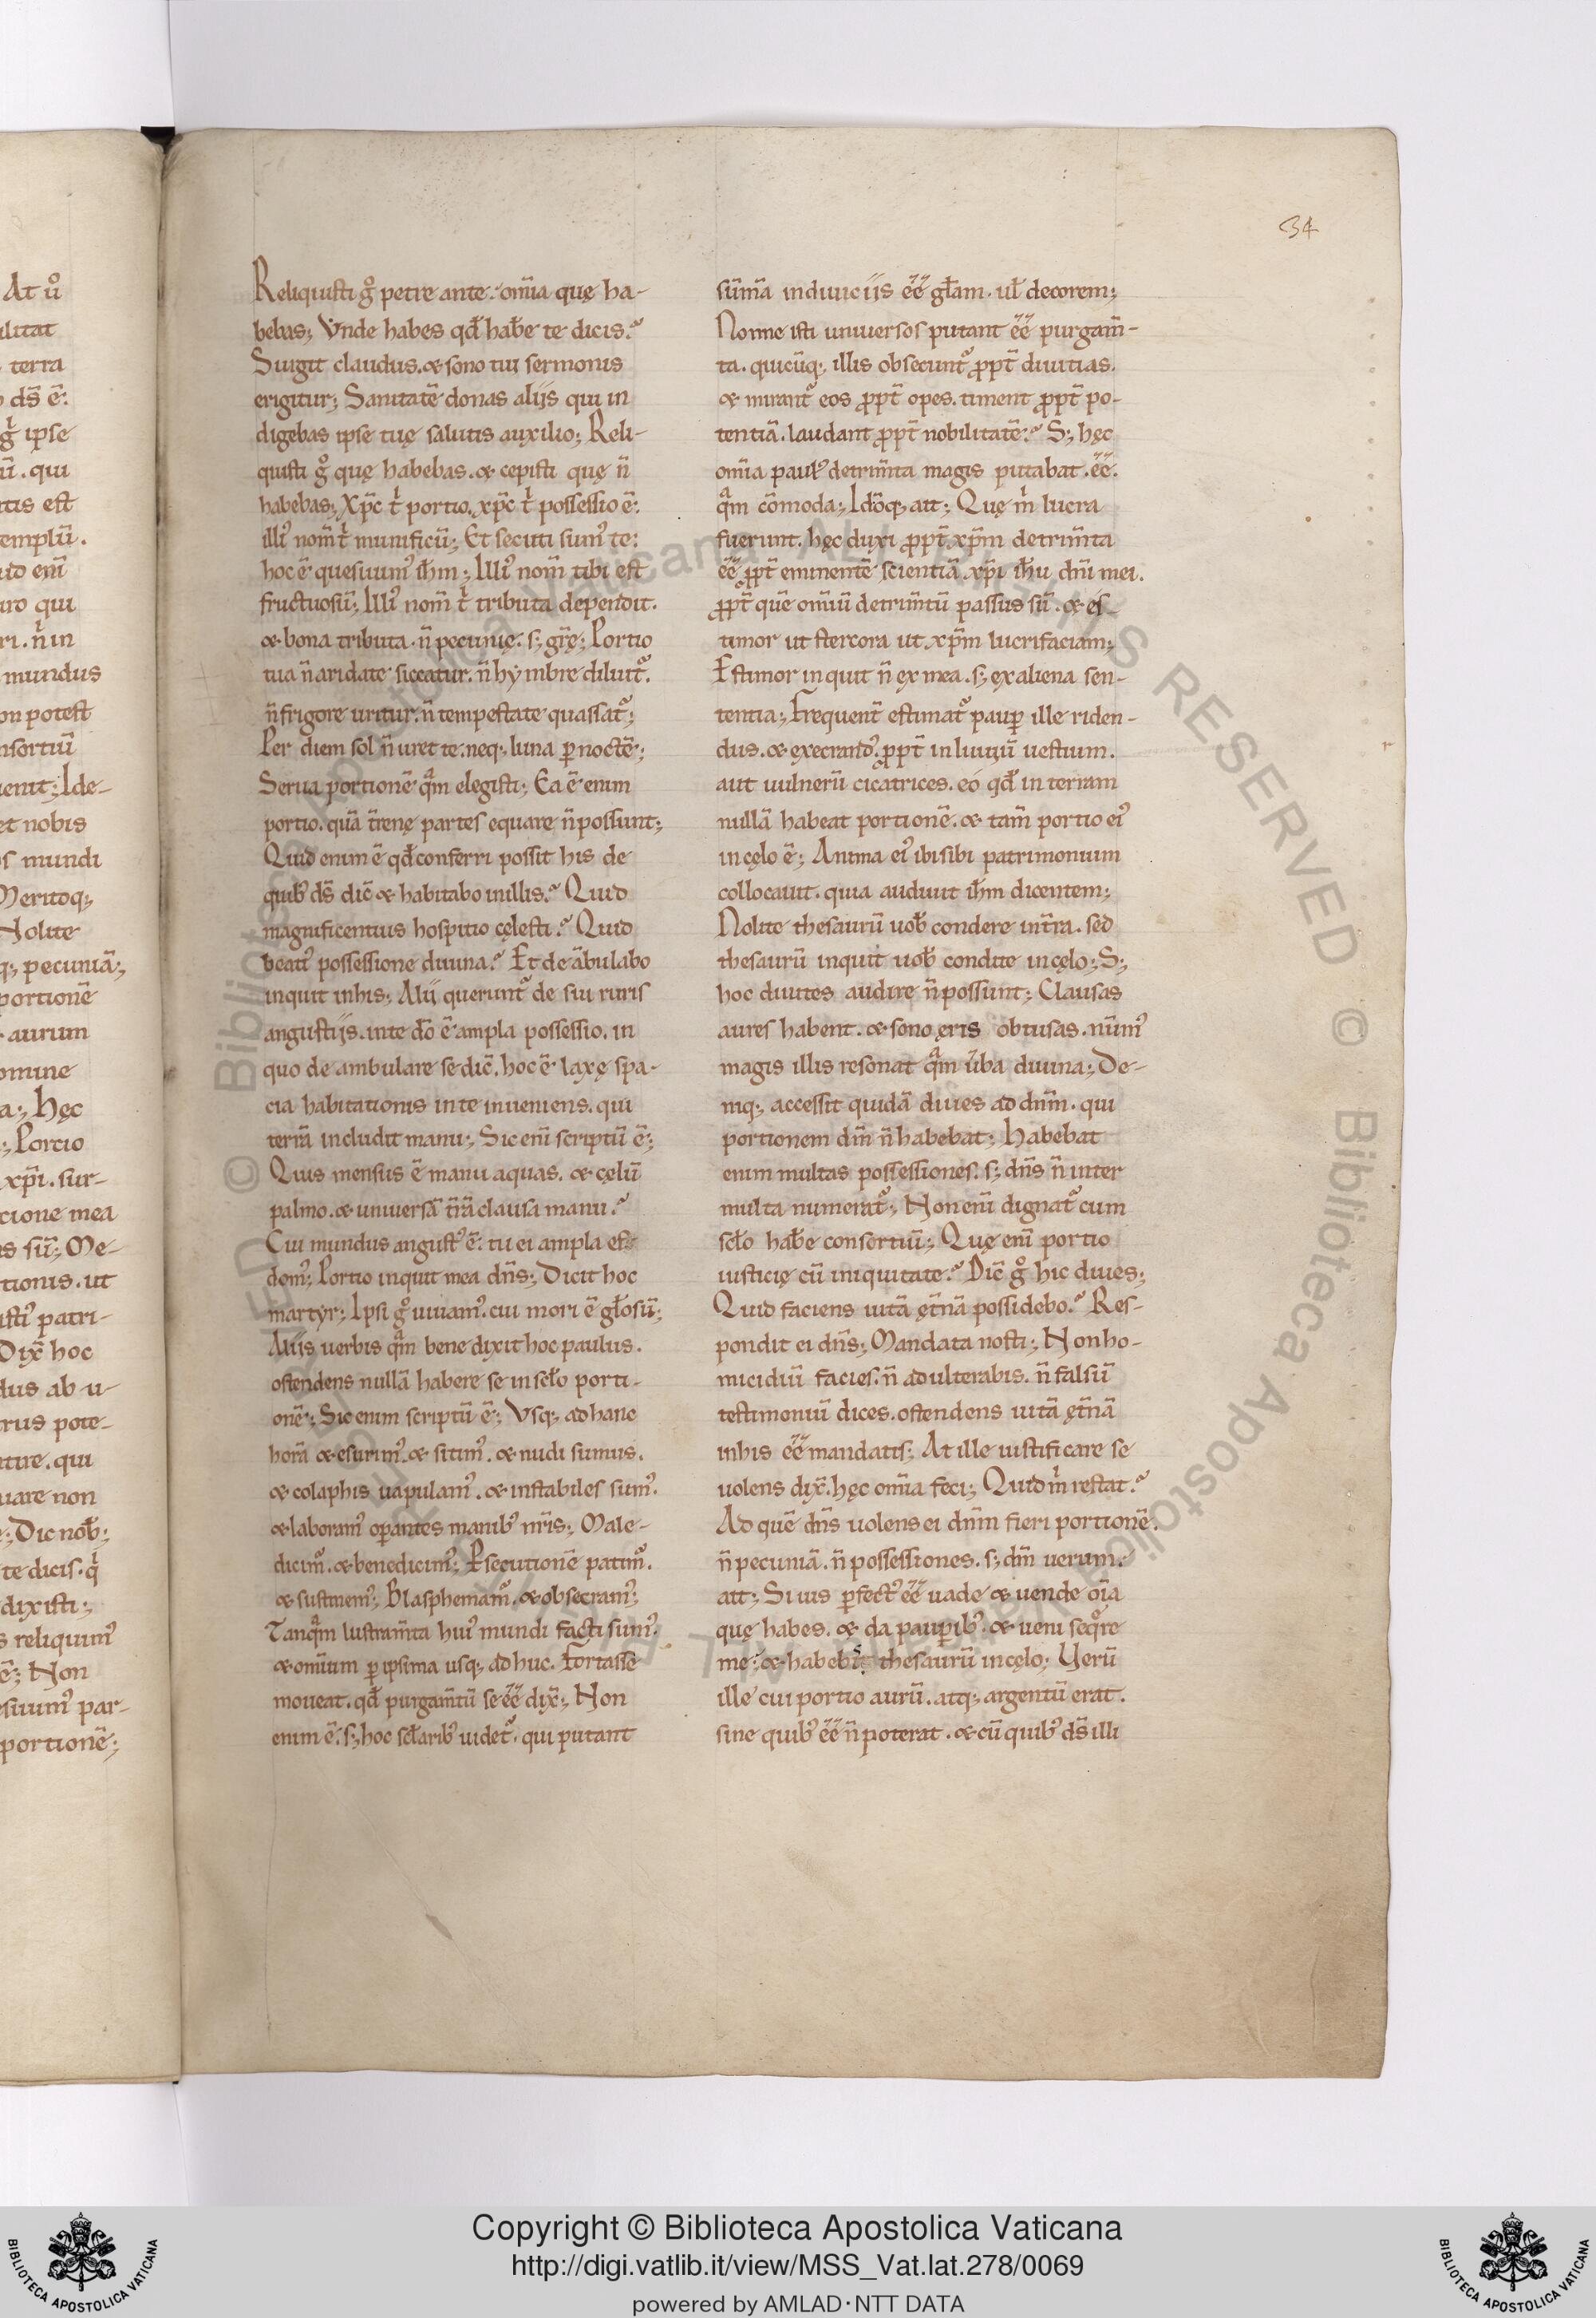 34
At ů
ilitat
terra
ds̄ ē.
g̊ ipse
ū. qui
tis est
emplū.
uid eni̅
uro qui
ri. n̄ in
mundus
on potest
nsortiū
uenit; Ide-
et nobis
s mundi
Meritoq;
Nolite
q; pecuniā;
portionē
aurum
omine
a; Hęc
; Portio
xp̄i. sur-
cione mea
s sū; Me-
tionis. ut
isti patri-
Dix̄ hoc
dus ab u-
trus pote-
ture. qui
uare non
; Dic nob̄;
te dicis. q̇
dixisti;
s reliquim᷒
ē; Non
suum᷒ par-
portionē;
Reliquisti g̊ petre ante. om̄ia quę ha-
bebas; Vnde habes qđ hab̄e te dicis.?
Surgit claudus. & sono tui sermonis
erigitur; Sanitatē donas alijs qui in
digebas ipse tuę salutis auxilio; Reli-
quisti g̊ quę habebas. & cepisti quę n̄
habebas; Xp̄c t̄ portio. xp̄c t̄ possessio ē.
illi᷒ nom̄ t̄ munificū; Et secuti sum᷒ te:
hoc ē quesiuum᷒ ih̄m; Illi᷒ nom̄ tibi est
fructuosū; Illi᷒ nom̄ t̄ tributa dependit.
& bona tributa. n̄ pecunię. s; gr̄ę; Portio
tua n̄ aridate siccatur. n̄ hymbre diluit᷑.
n̄ frigore uritur. n̄ tempestate quassat᷑;
Per diem sol n̄ uret te. neq; luna p̱ noctē;
Serua portionē qͣm elegisti; Ea ē enim
portio. quā t̄renę partes equare n̄ possunt;
Quid enim ē qđ conferri possit his de
quib᷒ ds̄ dic̄ & habitabo in illis.? Quid
magnificentius hospitio cęlesti.? Quid
beati᷒ possessione diuina.? Et de ābulabo
inquit in his; Alij querunt᷑ de sui ruris
angustijs. in te d̄o ē ampla possessio. in
quo de ambulare se dic̄. hoc ē laxę spa-
cia habitationis in te inueniens. qui
terrā includit manu; Sic eni̅ scriptū ē;
Quis mensus ē manu aquas. & cęlū
palmo. & uniuersā t̄rā clausa manu.?
Cui mundus angust᷒ ē. tu ei ampla es
dom᷒; Portio inquit mea dn̄s; Dicit hoc
martyr; Ipsi g̊ uiuiam᷒. cui mori ē gl̄osū;
Alijs uerbis qͣm bene dixit hoc paulus.
ostendens nullā habere se in sc̄lo porti-
onē; Sic enim scriptū ē; Vsq; ad hanc
horā & esurim᷒. & sitim᷒. & nudi sumus.
& colaphis uapulam᷒. & instabiles sum᷒.
& laboram᷒ op̱antes manib᷒ nr̄is; Male-
dicim᷑. & benedicim᷒; P̱secutionē patim᷑.
& sustinem᷒; Blasphemam᷑. & obsecram᷒;
Tanqͣm lustram̄ta hui᷒ mundi facti sum᷒.
& omīum p̱ipsima usq; ad huc. Fortasse
moueat. qđ purgam̄tū se ēē dix̄; Non
enim ē. s; hoc sc̄larib᷒ uidet᷑. qui putant
sūma in diuicijs ēē gl̄am. ul̄ decorem;
Nonne isti uniuersos putant ēē purgam̄-
ta. quicūq; illis obsecunt᷑ ꝓpt̄ diuitias.
& mirant᷑ eos ꝓpt̄ opes. timent ꝓpt̄ po-
tentiā. laudant ꝓpt̄ nobilitatē.? S; hęc
om̄ia paul᷒ detrim̄ta magis putabat ēē.
qͣm cōmoda; Idōq; ait; Quę m̊ lucra
fuerunt. hęc duxi ꝓpt̄ xp̄m detrim̄ta
ēē ꝓpt̄ eminentē scientiā xp̄i ih̄u dn̄i mei.
ꝓpt̄ quē omīū detrim̄tū passus sū. & es-
timor ut stercora ut xp̄m lucrifaciam;
Estimor inquit n̄ ex mea. s; ex aliena sen-
tentia; Frequent̄ estimat᷑ paup̱ ille riden-
dus. & execrand᷒. ꝓpt̄ inluuiū uestium.
aut uulnerū cicatrices. eó qđ in terram
nullā habeat portionē. & tam̄ portio ei᷒
in cęlo ē; Anima ei᷒ ibi sibi patrimonium
collocauit. quia audiuit ih̄m dicentem;
Nolite thesaurū uob̄ condere in t̄ra. sed
thesaurū inquit uob̄ condite in cęlo; S;
hoc diuites audire n̄ possunt; Clausas
aures habent. & sono ęris obtusas. nūm᷒
magis illis resonat qͣm ūba diuina; De-
niq; accessit quidā diues ad dn̄m. qui
portionem dn̄i n̄ habebat; Habebat
enim multas possessiones. s; dn̄s n̄ inter
multa numerat᷑; Non eni̅ dignat᷑ cum
sc̄lo hab̄e consortiū; Quę eni̅ portio
iusticię cū iniquitate.? Dic̄ g̊ hic diues;
Quid faciens uitā ęt̄nā possidebo.? Res-
pondit ei dn̄s; Mandata nosti; Non ho-
micidiū facies. n̄ adulterabis. n̄ falsū
testimoniū dices. ostendens uitā ęt̄nā
in his ēē mandatis; At ille iustificare se
uolens dix̄. hęc om̄ia feci; Quid m̊ restat.?
Ad quē dn̄s uolens ei dn̄m fieri portionē.
n̄ pecuniā. n̄ possessiones. s; dn̄m uerum.
ait; Si uis p̱fect᷒ ēē uade & uende oīa
quę habes. & da paup̱ib᷒. & ueni seqͦre
me. & habebis thesaurū in cęlo; Verū
ille cui portio aurū. atq; argentū erat.
sine quib᷒ ēē n̄ poterat. & cū quib᷒ ds̄ illi
Copyright © Biblioteca Apostolica Vaticana
http://digi.vatlib.it/view/MSS_Vat.lat.278/0069
powered by AMLAD·NTT DATA